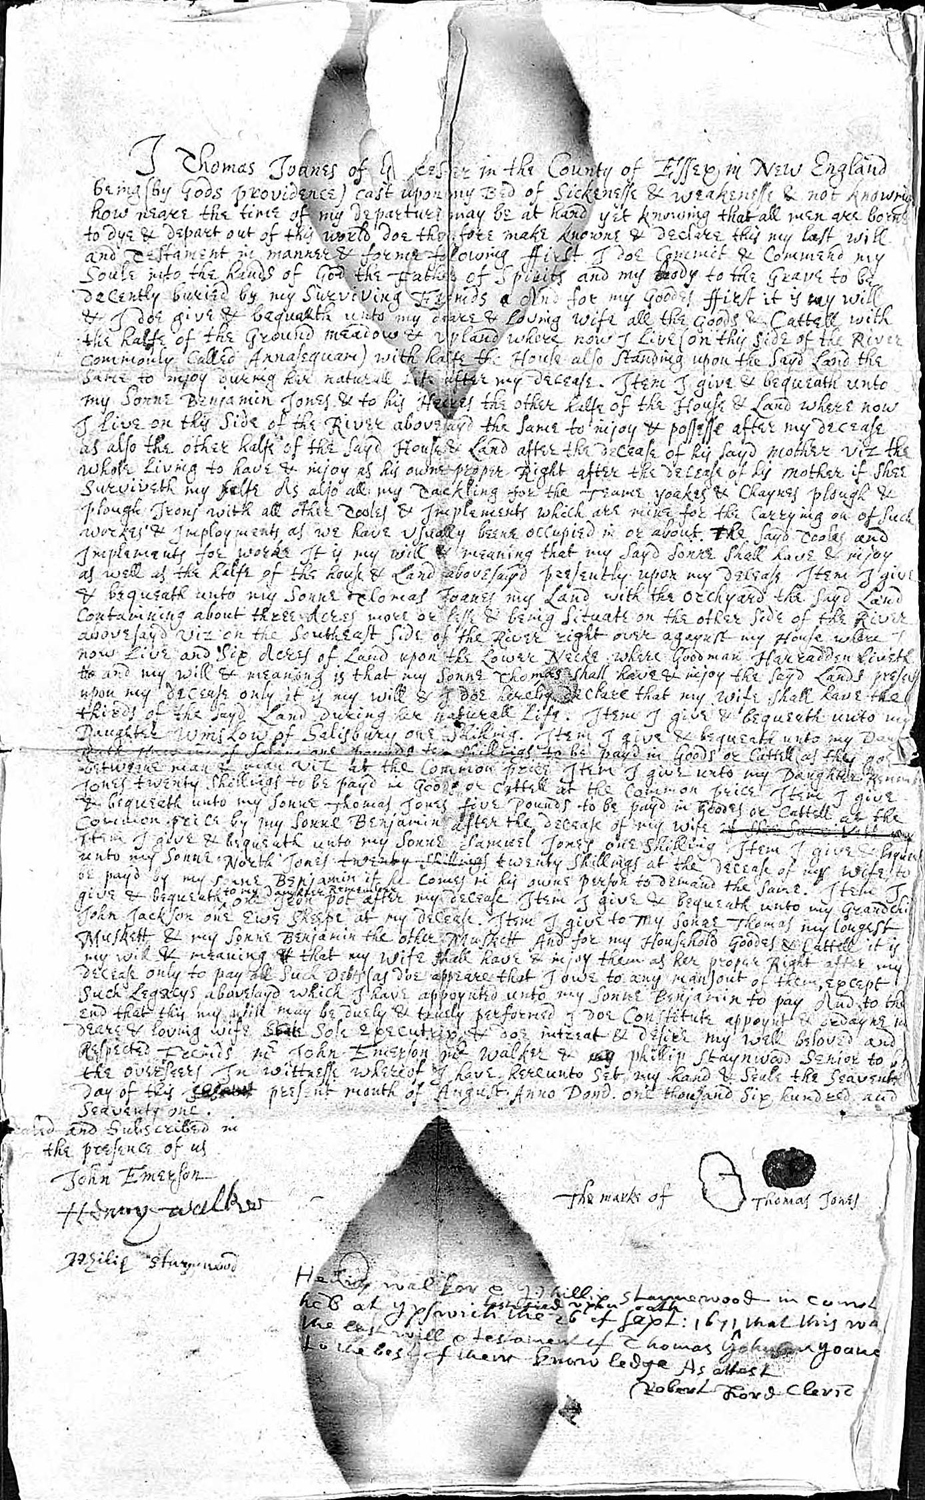 I Thomas Joanes of in the County of Essex in New England
being (by Gods providence) cast upon my Bed of Sickenesse & weakenesse & not knowing
how neare the time of my departure may be at hand yet knowing that all men are borne
to dye & depart out of this world doe therefore make knowne & declare this my last will
and Testament in manner & forme following ffirst I doe Commit & Commend my
Soule into the hands of God the ffather of Spirits and my body to the Grave to be
decently buried by my Surviving Freinds And for my Goods ffirst it is my will
& I doe give & bequeath unto my deare & loving wife all the Goods & Cattell with
the halfe of the Ground meadow & upland where now I Live (on this Side of the River
Commonly Called Annasquam) with halfe the House also standing upon the Sayd Land the
Same to injoy during her naturall Life after my decease. Item I give & bequeath unto
my Sonne Benjamin Jones & to his Heires the other halfe of the House & Land where now
I live on this Side of the River abovesayd the Same to injoy & possesse after my decease
as also the other halfe of the Sayd House & Land after the decease of his Sayd mother viz the
whole Living to have & injoy as his owne proper Right after the decease of his mother if Shee
Surviveth my Selfe As also all my Tackling for the Teame yoakes & Chaynes plough &
plough Irons with all other Tooles & Implements which are mine for the Carrying on of Such
workes & Imployments as we have usually beene occupied in or about. The Sayd Tooles and
Implements for worke It is my will & meaning that my Sayd Sonne Shall have & injoy
as well as the halfe of the house & Land abovesayd presently upon my decease Item I give
& bequeath unto my Sonne Thomas Joanes my Land with the orchyard the Sayd Land
Containing about three Acres more or lesse & being Situate on the other Side of the River
abovesayd viz on the Southeast Side of the River right over against my House where I
now Live and Six Acres of Land upon the Lower Necke where Goodman Harradden Liveth
and my will & meaning is that my Sonne Thomas Shall have & injoy the Sayd Lands
upon my decease only it is my will & I doe hereby declare that my wife Shall have the
thirds of the Sayd Land During her naturall Life. Item I give & bequeath unto my
Daughter Winslow of Salisbury one Shilling. Item I give & bequeath unto my
of one pounds ten Shillings to be payd in Goods or Cattell as they
betweene man & man viz at the Common price Item I give unto my Daughter
Jones twenty Shillings to be payd in Goods or Cattell at the Common price Item I give
& bequeath unto my Sonne Thomas Jones five pounds to be payd in Goods or Cattell at the
Common price by my Sonne Benjamin after the decease of my wife
Item I give & bequeath unto my Sonne Samuel Jones one Shilling Item I give &
unto my Sonne North Jones twenty Shillings twenty Shillings at the decease of my wife to
be payd by my Sonne Benjamin if he Comes in his owne person to demand the Same. Item I
give & bequeath to my Daughter Remember one Iron pot after my decease Item I give & bequeath unto my
John Jackson one Ewe Sheepe at my decease. Item I give to my Sonne Thomas my longest
Muskett & my Sonne Benjamin the other Muskett And for my Household Goodes & Cattell it is
my will & meaning that my wife Shall have & injoy them as her proper Right after my
decease only to pay all Such Debts (as doe appeare that I owe to any man) out of them, except
Such Legacys abovesayd which I have appoynted unto my Sonne Benjamin to pay And to the
end that this my will may be duely & truely performed I doe Constitute appoynt & ordayne
deare & loving wife Sole Executrix & doe intreat & desire my well beloved and
Respected Freinds mr John Emerson Walker & phillip Staynwood Senior to
the overseers In wittnesse whereof I have hereunto Set my hand & Seale the Seaventh
day of this present month of August Anno Domi. one thousand Six hundred and
Seaventy one.
and Subscribed in
the presence of us
John Emerson
Henry walker
Philip Stainwood
The marke of Thomas Jones
Henry walker & Phillip staynewood in Court
held at Ypswich the 26 of sept: 1671 testified upon oath that this
the last will & testament of Thomas
to the best of their knowledge As attest
Robert Lord Cleric